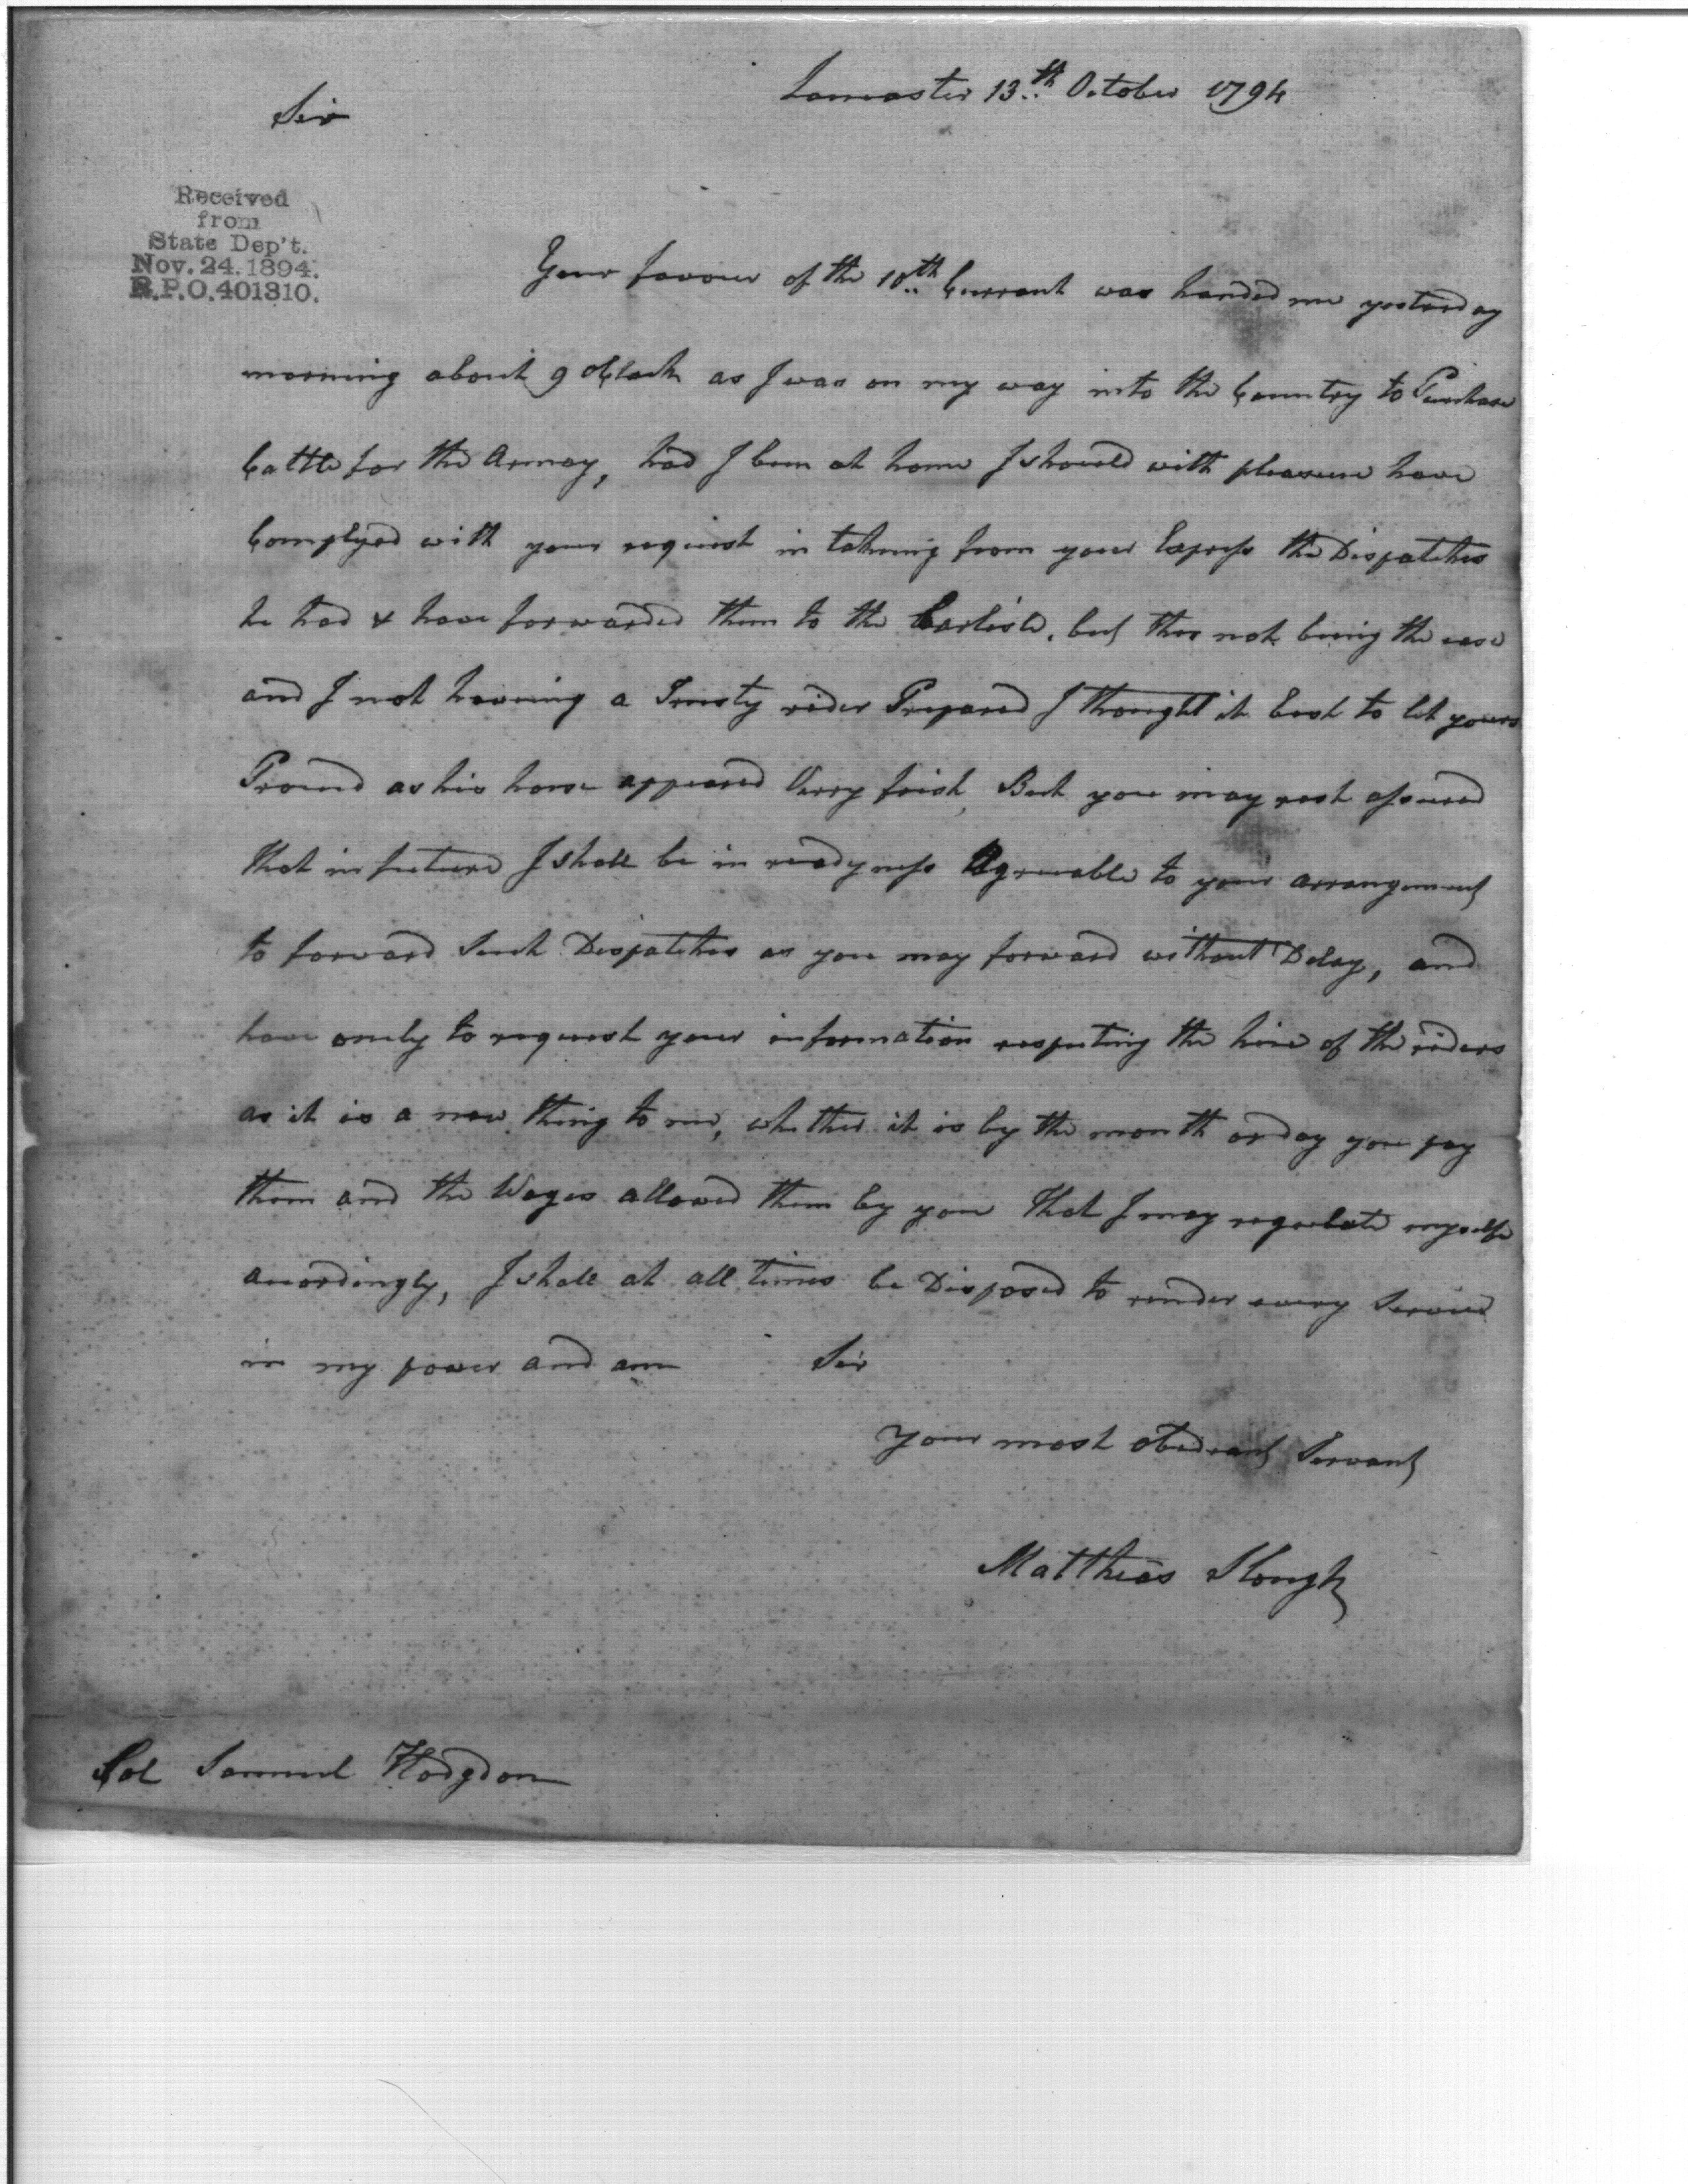 Lancaster 13th October 1794
Sir
Received
from
State Dep't.
Nov. 24. 1894.
R.P.O. 401310.
Your favour of the 10th Currant was handed me yesterday
morning about 9 oClock as I was on my way into the Country to Purchase
Cattle for the Armey, had I been at home I should with pleasure have
Complyed with your request in takeing from your Express the Dispatches
he had & have forwarded them to the Carlisle, but this not being the case
and I not haveing a Trusty rider Prepared I thought it best to let yours
Proceed as his horse appeared Verry frish, But you may rest assured
that in future I shall be in readyness Agreeable to your arrangement
to forward Such Dispatches as you may forward without Delay, and
have onely to request your information respecting the hire of the riders
as it is a new thing to me, whether it is by the month or day you pay
them and the Wages allowed them by you that I may regulate myselfe
accordingly, I shall at all times be Disposed to render every Service
in my power and am Sir
Your most obedeant Servant
Matthias Slough
Col Samuel Hodgdon